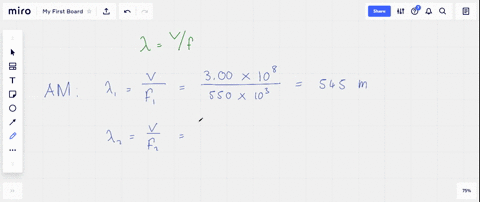 miro My First Board Share
λ = V/f
AM: λ₁ = V/f₁ = 3.00 × 10⁸ / 550 × 10³ = 545 m
λ₂ = V/f₂ =
75%